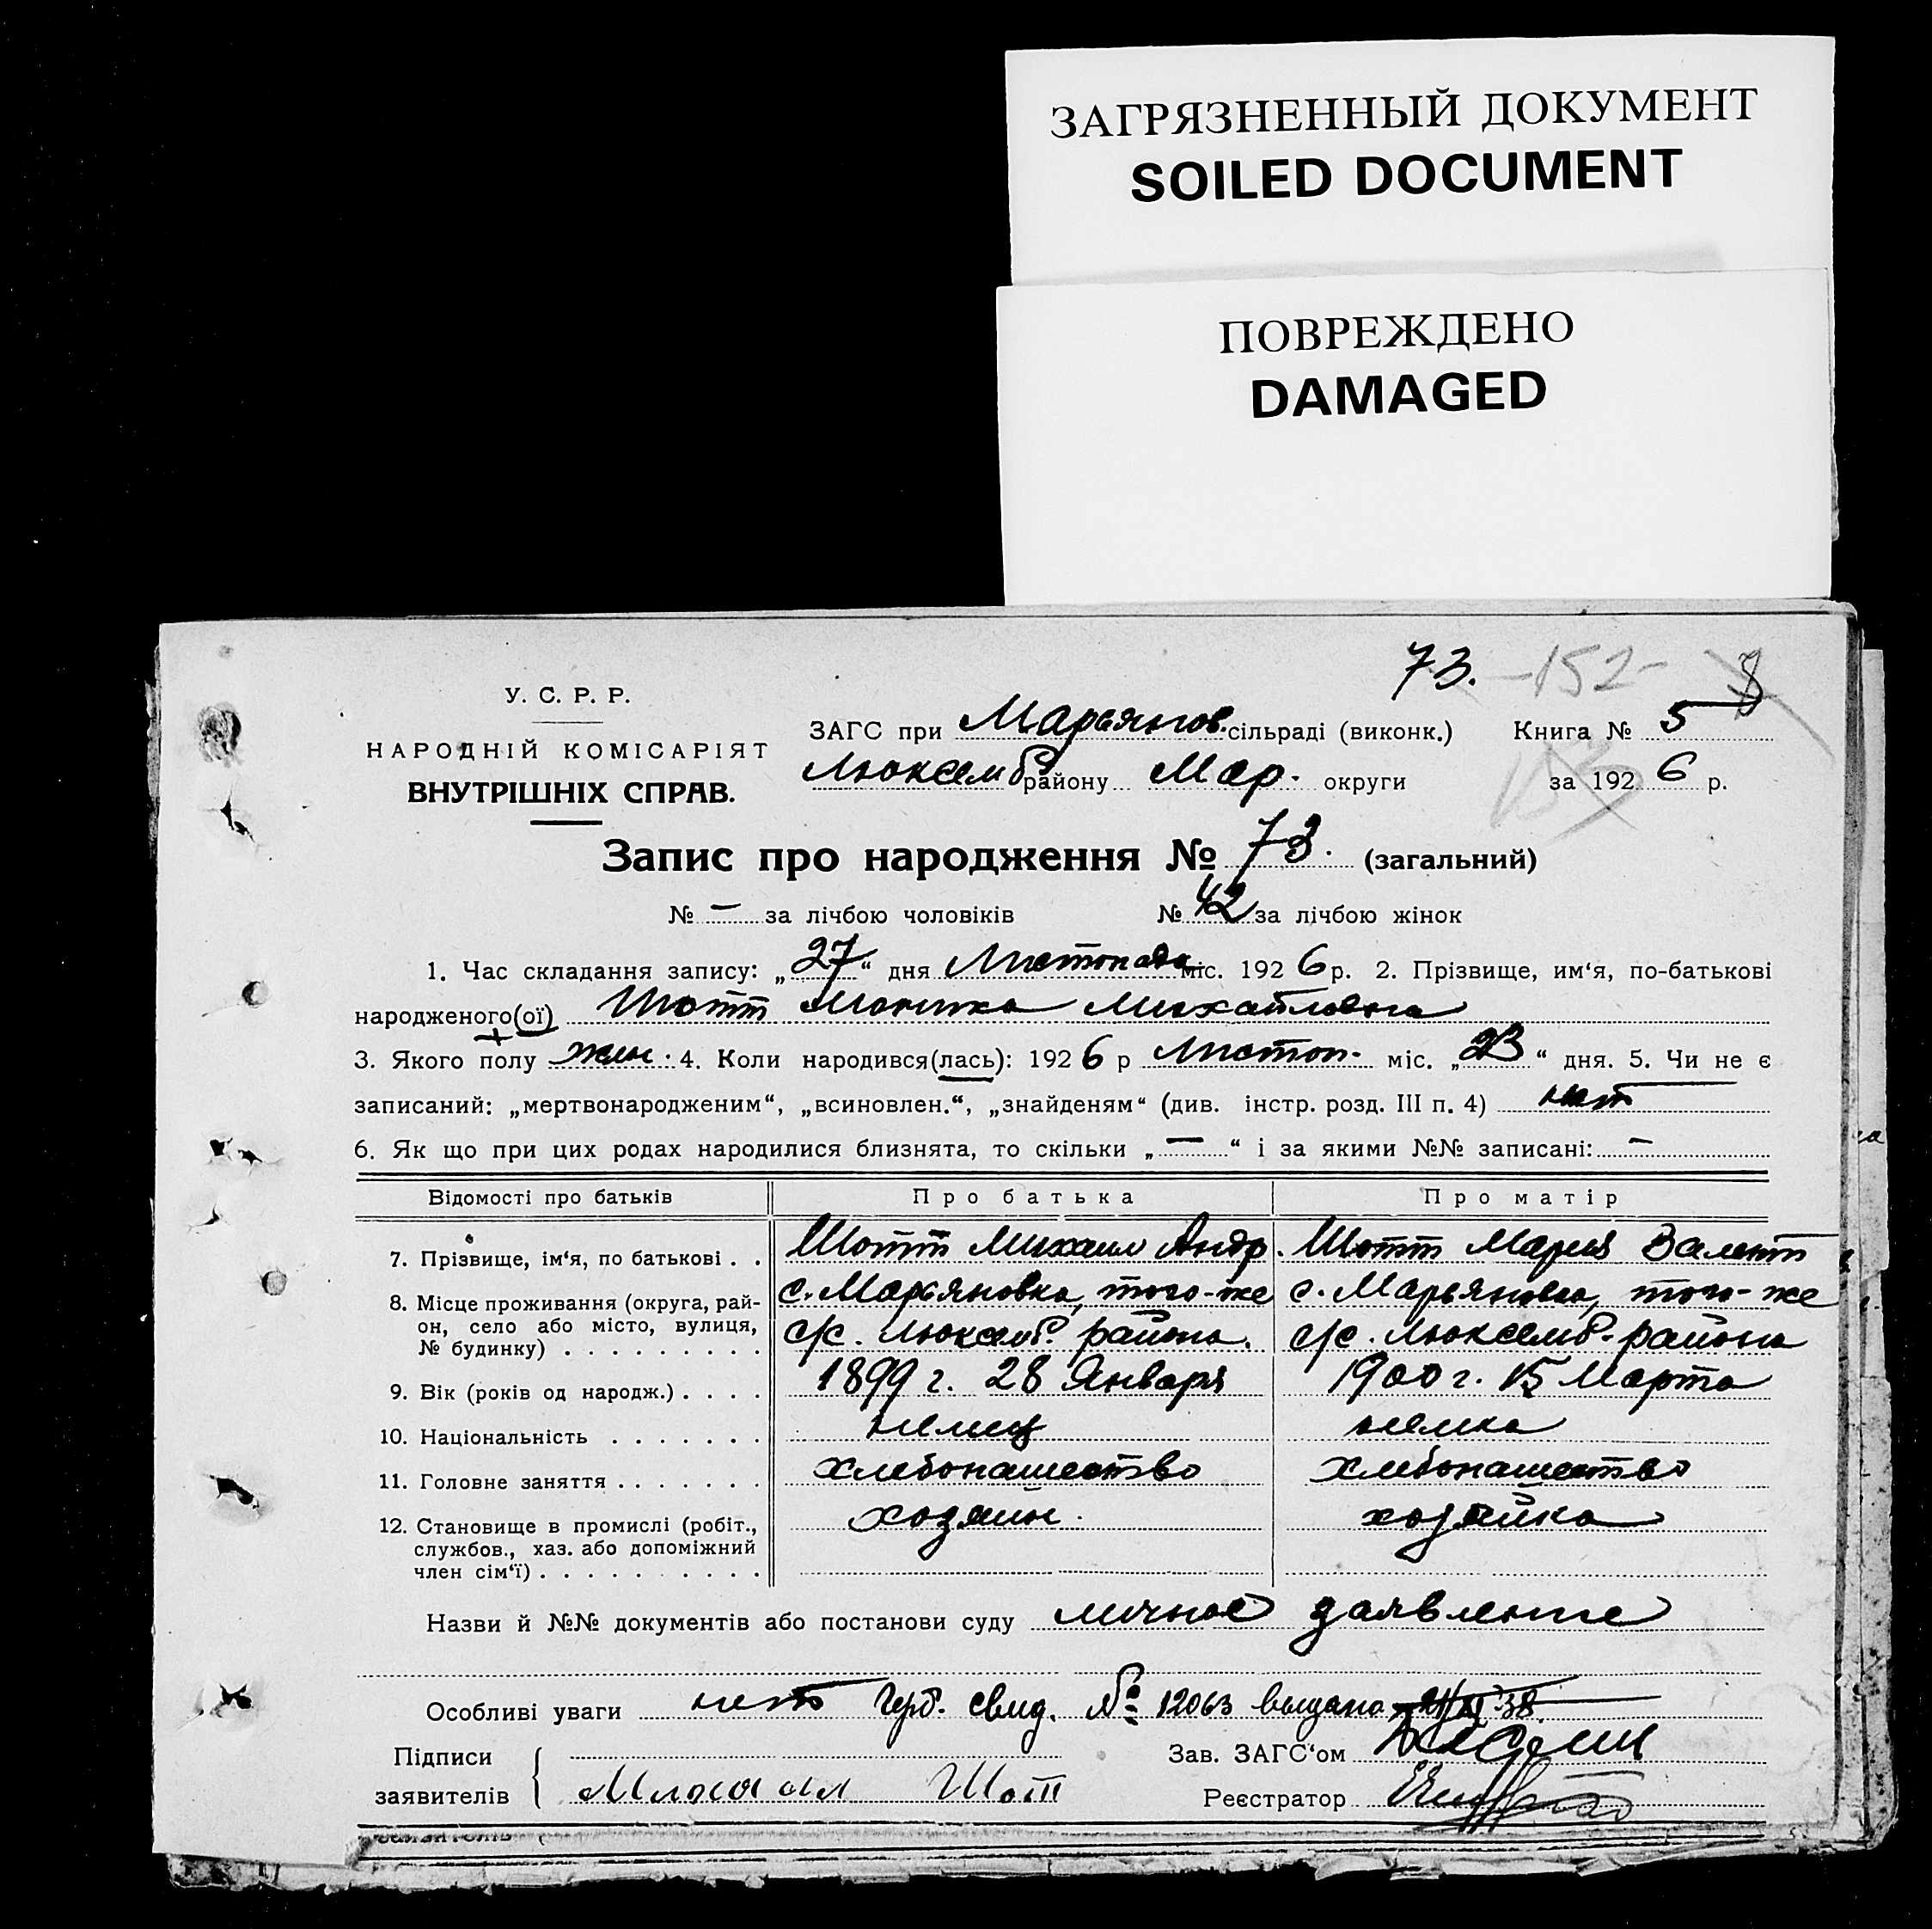 ЗАГРЯЗНЕННЫЙ ДОКУМЕНТ
SOILED DOCUMENT
ПОВРЕЖДЕНО
DAMAGED
73. -152- 
У. С. Р. Р.
НАРОДНІЙ КОМІСАРІЯТ
ВНУТРІШНІХ СПРАВ.
ЗАГС при Марьянов. сільраді (виконк.) Книга № 5
Люксемб району Мар. округи за 1926 р.
153
Запис про народження № 73. (загальний)
№ — за лічбою чоловіків № 42 за лічбою жінок
1. Час складання запису: „27“ дня Листопада міс. 1926 р. 2. Прізвище, им‘я, по-батькові
народженого(ої) Шотт Моника Михайловна
3. Якого полу жен. 4. Коли народився(лась): 1926 р Листоп. міс. „23“ дня. 5. Чи не є
записаний: „мертвонародженим“, „всиновлен.“, „знайденям“ (див. інстр. розд. III п. 4) нет
6. Як що при цих родах народилися близнята, то скільки „—“ і за якими №№ записані: —
Відомості про батьків Про батька Про матір
7. Прізвище, ім‘я, по батькові . . Шотт Михаил Андр. Шотт Мария Валент
8. Місце проживання (округа, рай- с. Марьяновка, того-же с. Марьяновка, того-же
он, село або місто, вулиця, с/с. Люксемб. района. с/с. Люксемб. района
№ будинку) . . . . . . . . .
9. Вік (років од народж.) . . . . 1899 г. 28 Января 1900 г. 15 Марта
10. Національність . . . . . . . немец немка
11. Головне заняття . . . . . . . хлебопашество хлебопашество
12. Становище в промислі (робіт., хозяин. хозяйка
службов., хаз. або допоміжний
член сім‘ї) . . . . . . . . . .
Назви й №№ документів або постанови суду личное заявление
Особливі уваги нет Герб. свид. № 12063 выдано 21/XI 38.
Підписи Зав. ЗАГС‘ом
заявителів Михаил Шотт Реєстратор